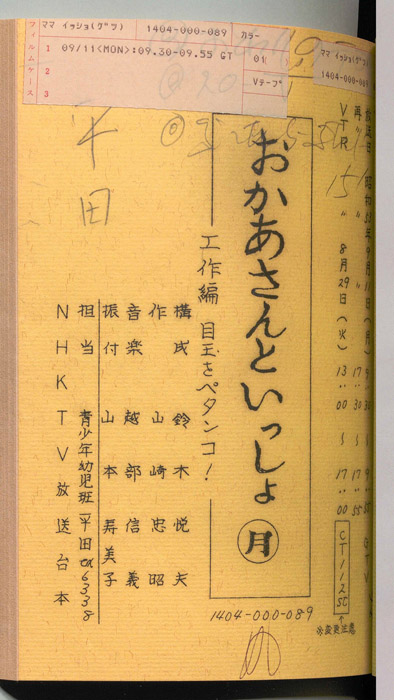 ママ イッショ(グツ) 1404-000-089 カラー
フィルムケース
1
2 09/11<MON>:09.30-09.55 GT 01
3 Vテープ
ママ イッショ(グツ)
1404-000-089
放送日 昭和53年9月11日(月) 9:30〜9:55 GTV
再〃 〃 〃 17:30〜17:55
VTR 〃 8月29日(火) 13:00〜17:00 CT112st
※変更注意
151
おかあさんといっしょ 月
工作編 目玉をペタンコ!
構成 鈴木悦夫
作 山崎忠昭
音楽 越部信義
振付 山本寿美子
担当 青少年幼児班 平田 6338
NHKTV放送台本
平田
1404-000-089